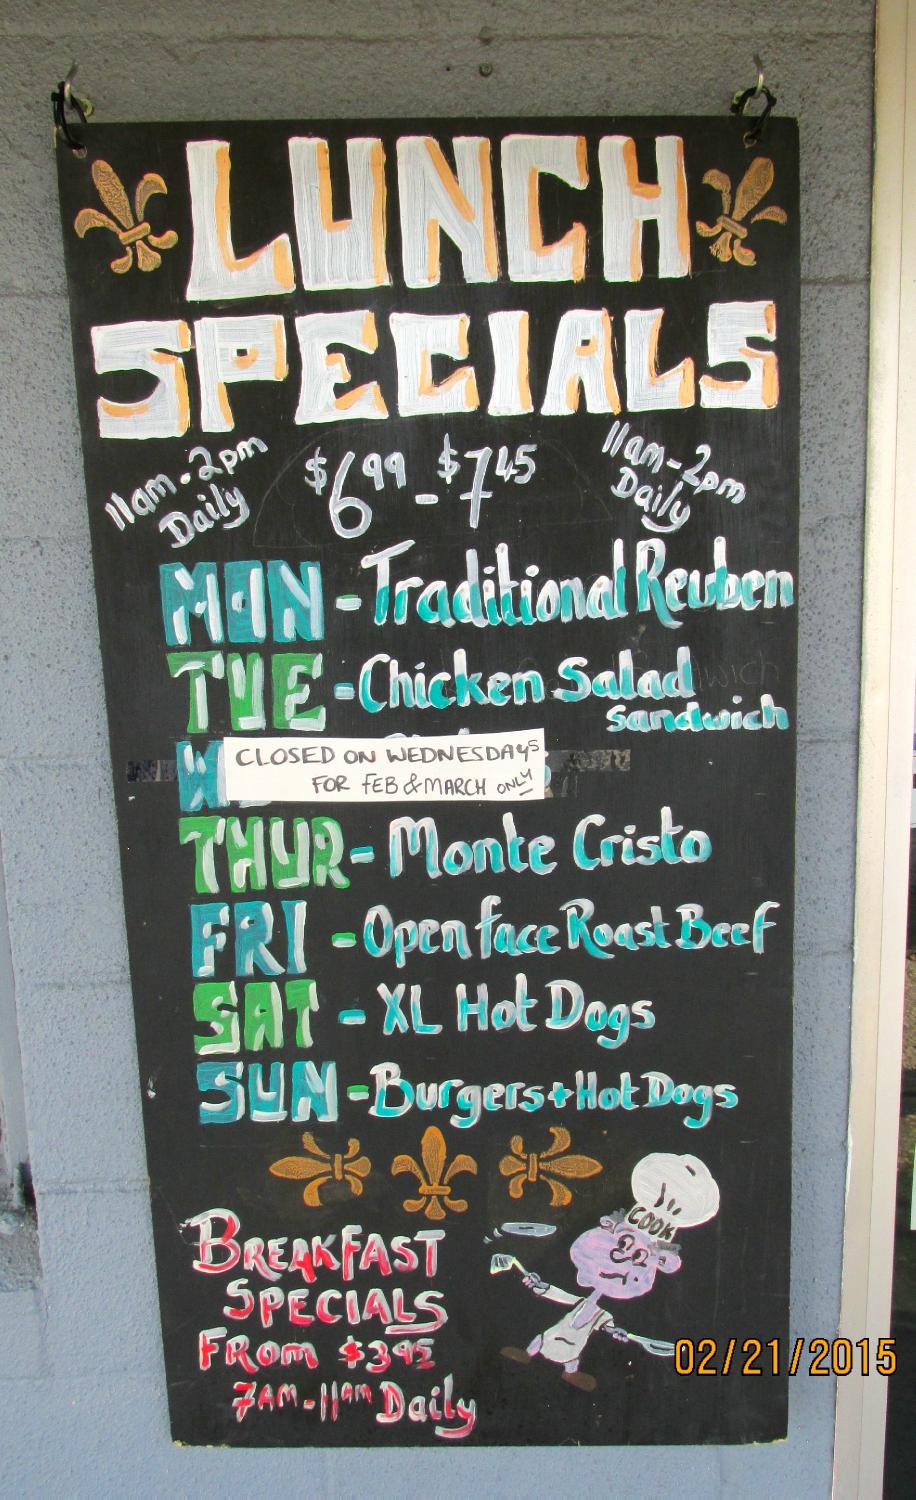 LUNCH
SPECIALS
11am-2pm
Daily
$6.99 - $7.45
11am-2pm
Daily
MON - Traditional Reuben
TUE - Chicken Salad
Sandwich
W
CLOSED ON WEDNESDAYS
FOR FEB & MARCH ONLY
THUR - Monte Cristo
FRI - Open face Roast Beef
SAT - XL Hot Dogs
SUN - Burgers + Hot Dogs
COOK
BREAKFAST
SPECIALS
FROM $3.95
7AM-11AM Daily
02/21/2015